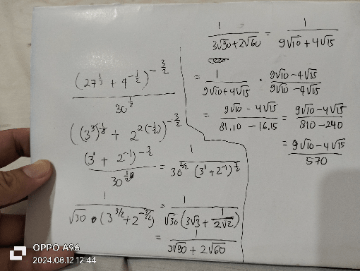 (27^{1/3} + 4^{-1/2})^{-3/2} / 30^{1/2}
((3^3)^{1/3} + 2^{2(-1/2)})^{-3/2}
(3^1 + 2^{-1})^{-3/2} / 30^{1/2} = 1 / 30^{1/2} (3^1 + 2^{-1})^{3/2}
1 / √30 (3^{3/2} + 2^{-3/2}) = 1 / √30 (3√3 + 1/2√2)
= 1 / 3√90 + 2√60
1 / 3√30 + 2√60 = 1 / 9√10 + 4√15
= 1 / 9√10 + 4√15 · 9√10 - 4√15 / 9√10 - 4√15
= 9√10 - 4√15 / 81.10 - 16.15 = 9√10 - 4√15 / 810 - 240
= 9√10 - 4√15 / 570
OPPO A96
2024.06.12 12:44